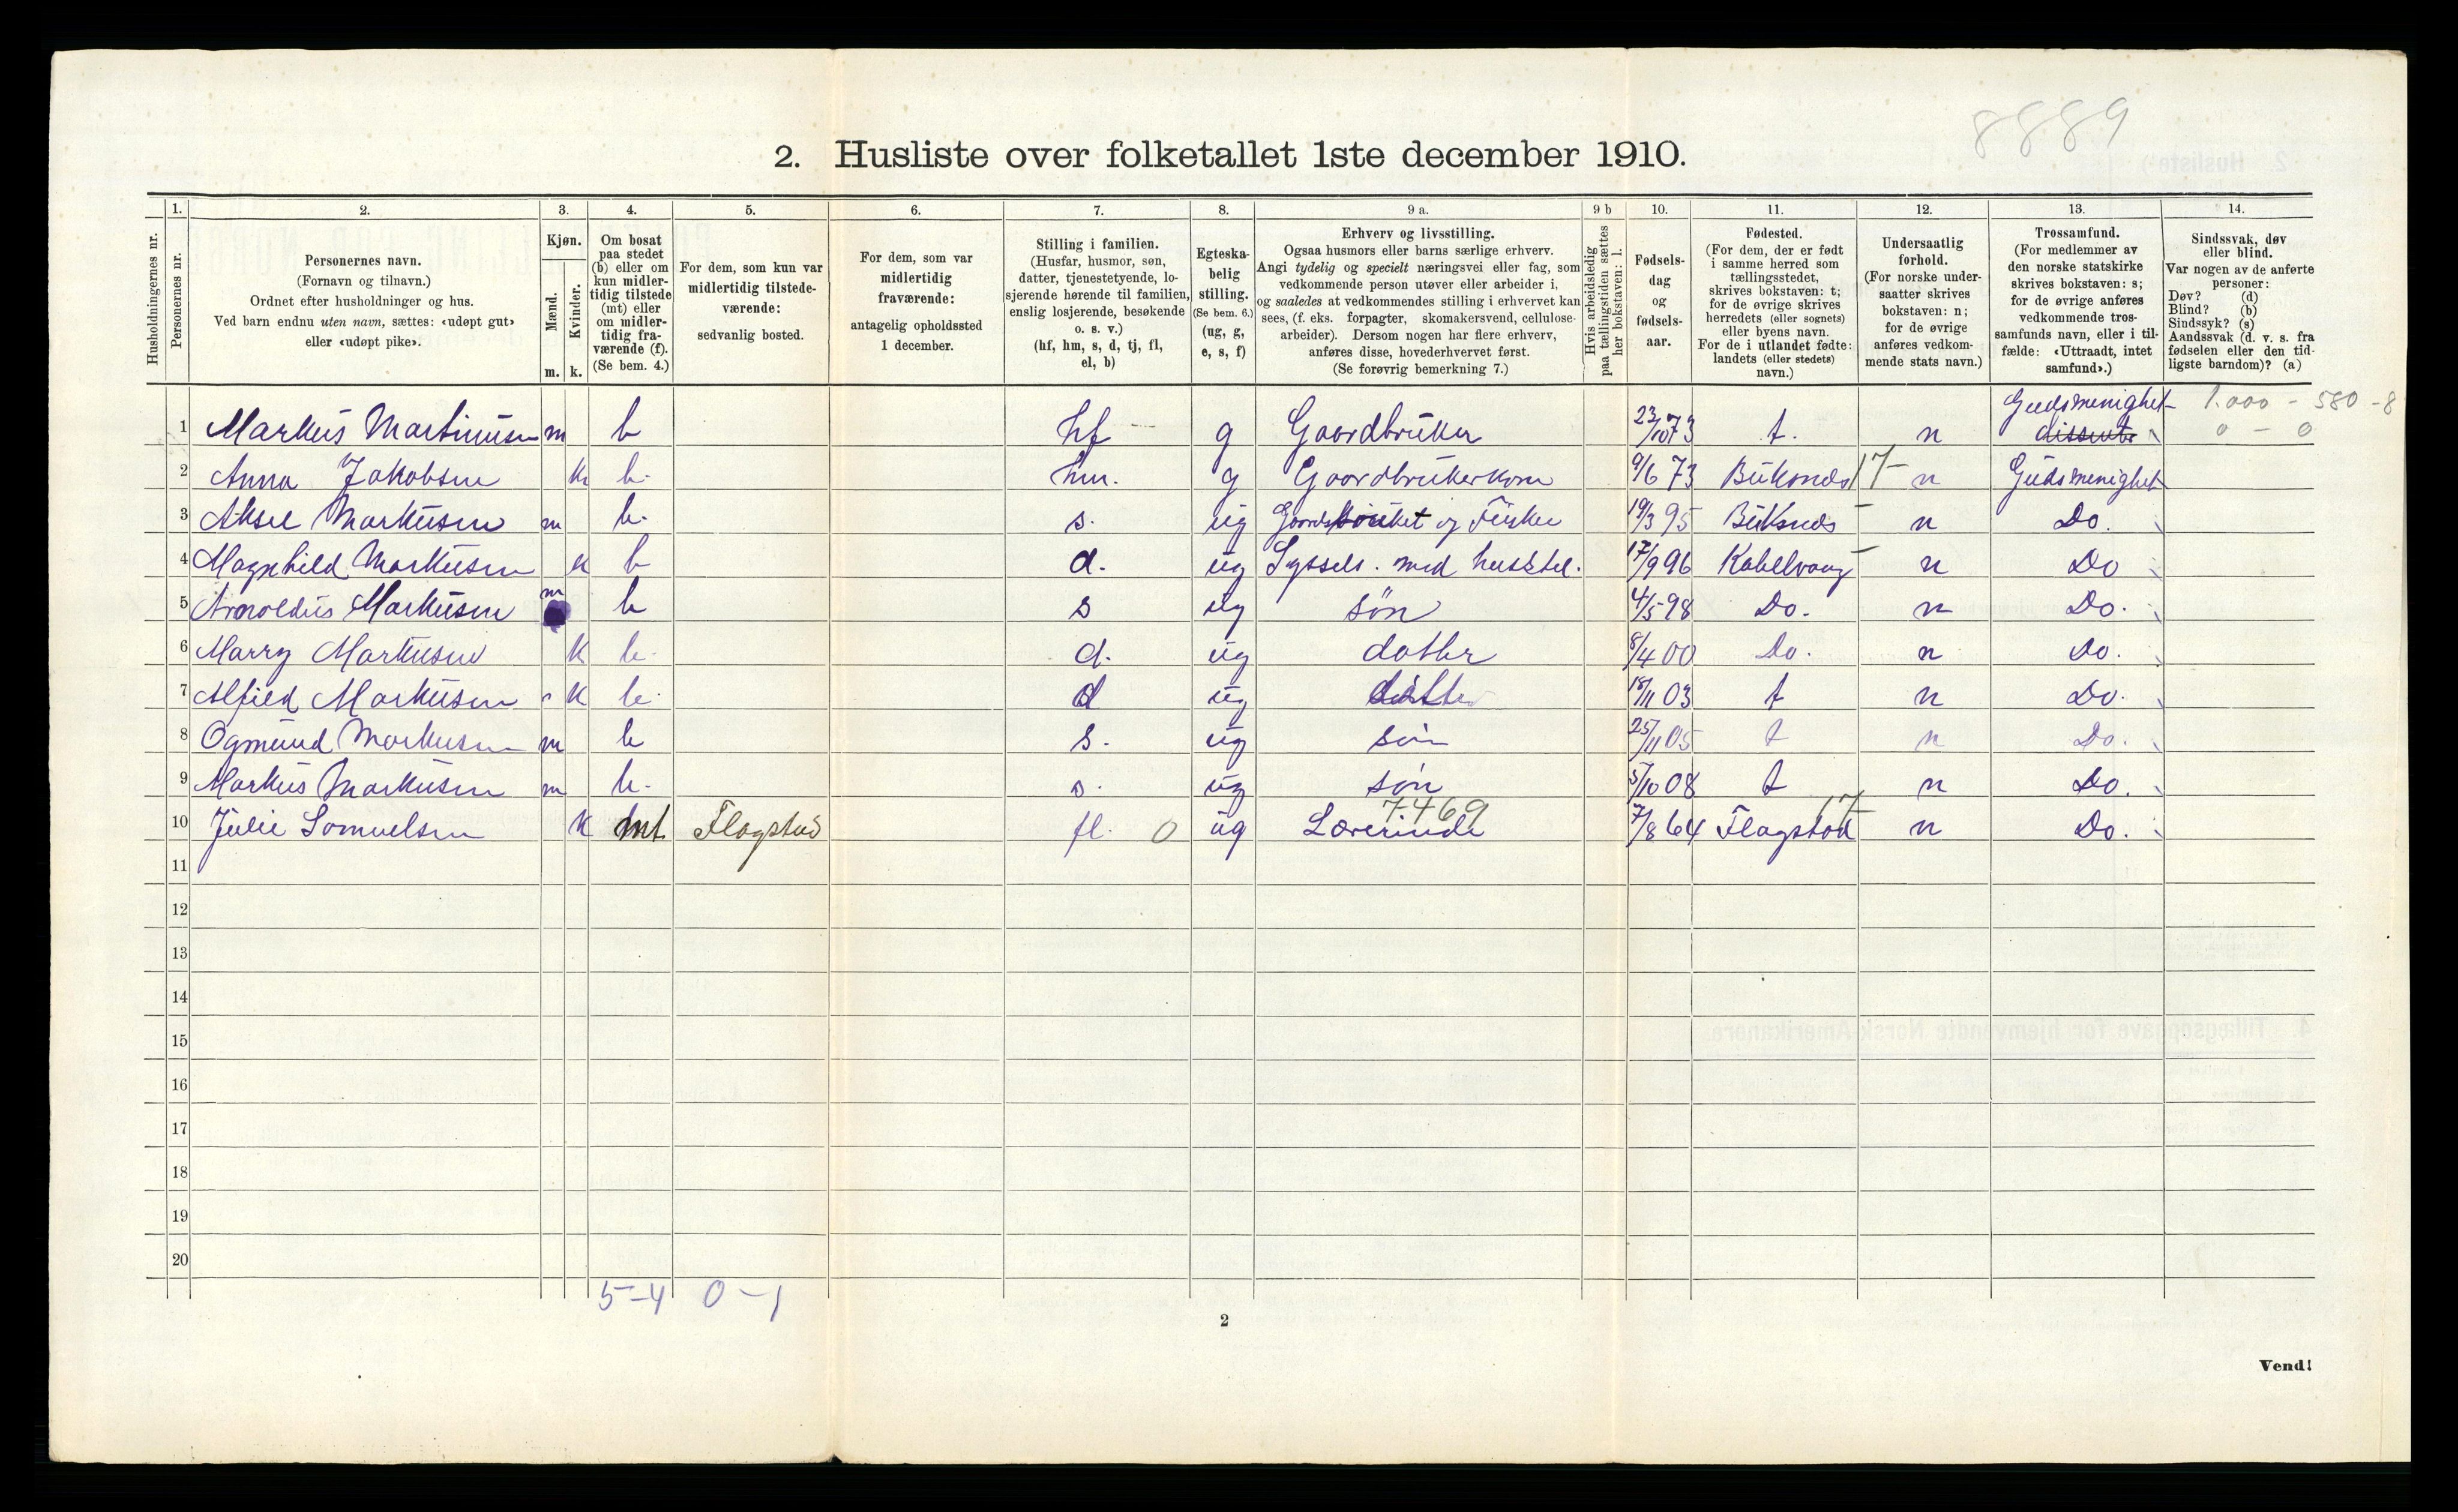 8889
2. Husliste over folketallet 1ste december 1910.
Husholdningernes nr.
1. Personernes nr.
2. Personernes navn. (Fornavn og tilnavn.) Ordnet efter husholdninger og hus. Ved barn endnu uten navn, sættes: «udøpt gut» eller «udøpt pike».
3. Kjøn. Mænd. m. Kvinder. k.
4. Om bosat paa stedet (b) eller om kun midlertidig tilstede (mt) eller om midlertidig fraværende (f). (Se bem. 4.)
5. For dem, som kun var midlertidig tilstedeværende: sedvanlig bosted.
6. For dem, som var midlertidig fraværende: antagelig opholdssted 1 december.
7. Stilling i familien. (Husfar, husmor, søn, datter, tjenestetyende, losjerende hørende til familien, enslig losjerende, besøkende o. s. v.) (hf, hm, s, d, tj, fl, el, b)
8. Egteskabelig stilling. (Se bem. 6.) (ug, g, e, s, f)
9 a. Erhverv og livsstilling. Ogsaa husmors eller barns særlige erhverv. Angi tydelig og specielt næringsvei eller fag, som vedkommende person utøver eller arbeider i, og saaledes at vedkommendes stilling i erhvervet kan sees, (f. eks. forpagter, skomakersvend, cellulosearbeider). Dersom nogen har flere erhverv, anføres disse, hovederhvervet først. (Se forøvrig bemerkning 7.)
9 b Hvis arbeidsledig paa tællingstiden sættes her bokstaven: l.
10. Fødselsdag og fødselsaar.
11. Fødested. (For dem, der er født i samme herred som tællingsstedet, skrives bokstaven: t; for de øvrige skrives herredets (eller sognets) eller byens navn. For de i utlandet fødte: landets (eller stedets) navn.)
12. Undersaatlig forhold. (For norske undersaatter skrives bokstaven: n; for de øvrige anføres vedkommende stats navn.)
13. Trossamfund. (For medlemmer av den norske statskirke skrives bokstaven: s; for de øvrige anføres vedkommende trossamfunds navn, eller i tilfælde: «Uttraadt, intet samfund».)
14. Sindssvak, døv eller blind. Var nogen av de anførte personer: Døv? (d) Blind? (b) Sindssyk? (s) Aandssvak (d. v. s. fra fødselen eller den tidligste barndom)? (a)
1 Markus Martinusen m b hf g Gaardbruker 23/10 73 t. n Gudsmenighet dissenter 1.000 - 580 - 8 0 - 0
2 Anna Jakobsen k b. hm. g Gaardbrukerkone 9/6 73 Buksnes 17 n Gudsmenighet
3 Aksel Markusen m b. s. ug og Fisker 19/3 95 Buksnes n Do.
4 Magnhild Markusen k b d. ug Syssels. med husstel. 17/9 96 Kabelvaag n Do
5 Arnoldus Markusen m b s ug søn 4/5 98 Do. n Do.
6 Marry Markusen k b. d. ug datter 8/4 00 Do. n Do.
7 Alfild Markusen k b. d ug datter 18/11 03 t n Do.
8 Ogmund Markusen m b s. ug søn 25/11 05 t n Do.
9 Markus Markusen m b. s. ug søn 5/10 08 t n Do.
10 Julie Samuelsen k mt Flagstad fl. 0 ug Lærerinde 7469 7/8 64 Flagstad 17 n Do.
11
12
13
14
15
16
17
18
19
20
5-4 0-1
2
Vend!